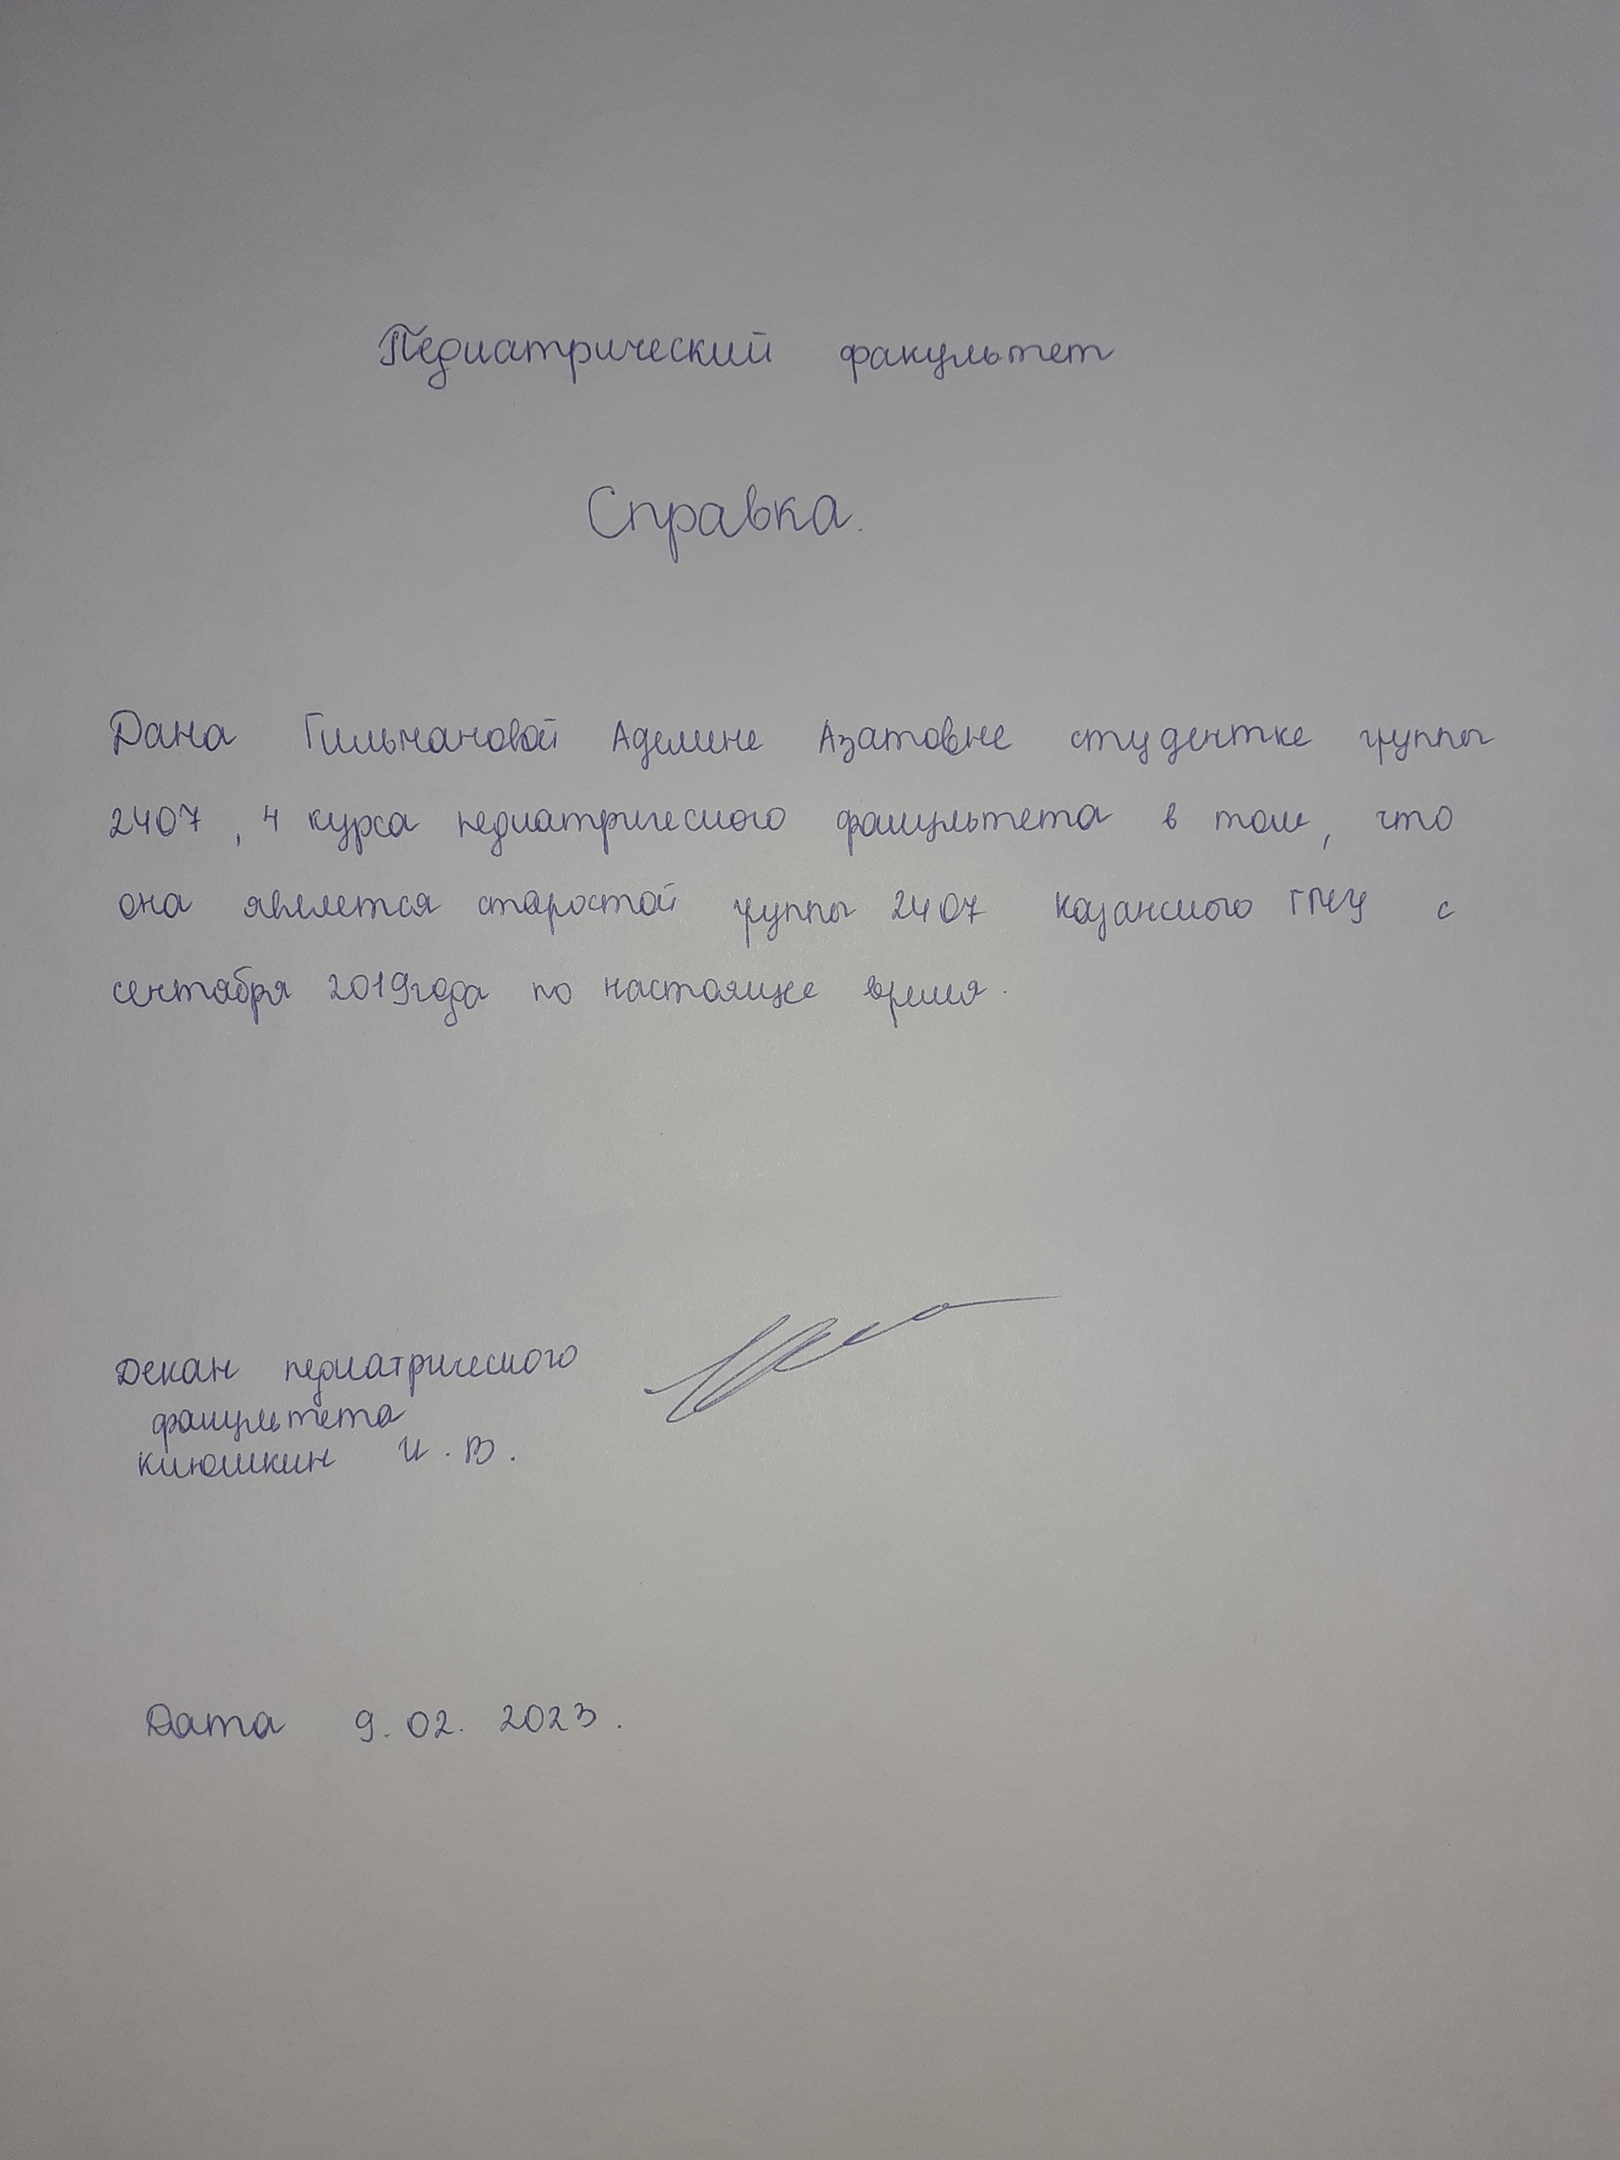 Педиатрический факультет
Справка.
Дана Гильмановой Аделине Азатовне студентке группы
2407, 4 курса педиатрического факультета в том, что
она является старостой группы 2407 Казанского ГМУ с
сентября 2019 года по настоящее время.
Декан педиатрического
факультета
Клюшкин И. В.
Дата 9. 02. 2023.